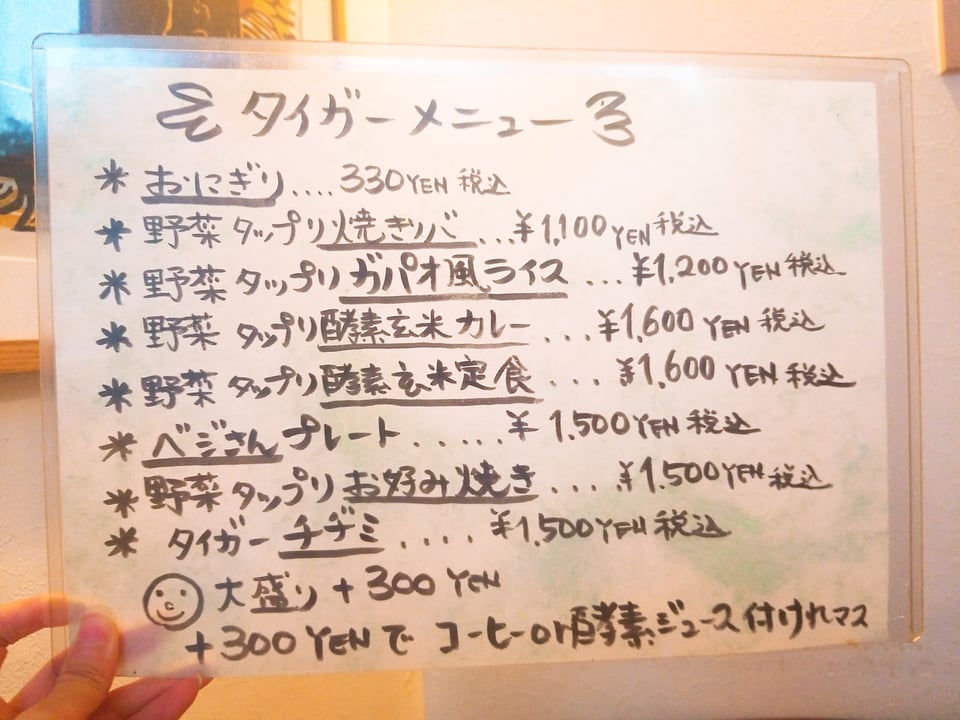 タイガーメニュー
* おにぎり....330YEN 税込
* 野菜タップリ焼きソバ...¥1,100YEN 税込
* 野菜タップリガパオ風ライス...¥1,200YEN 税込
* 野菜タップリ酵素玄米カレー...¥1,600YEN 税込
* 野菜タップリ酵素玄米定食...¥1,600YEN 税込
* ベジさんプレート......¥1,500YEN 税込
* 野菜タップリお好み焼き...¥1,500YEN 税込
* タイガーチヂミ....¥1,500YEN 税込
大盛り+300YEN
+300YENでコーヒーor酵素ジュース付けれマス